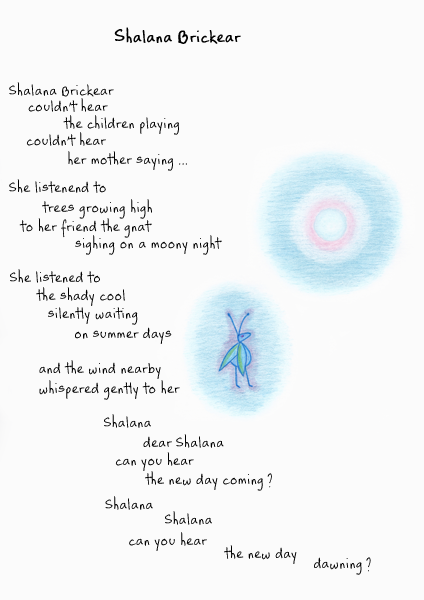 Shalana Brickear
Shalana Brickear
couldn't hear
the children playing
couldn't hear
her mother saying ...
She listenend to
trees growing high
to her friend the gnat
sighing on a moony night
She listened to
the shady cool
silently waiting
on summer days
and the wind nearby
whispered gently to her
Shalana
dear Shalana
can you hear
the new day coming ?
Shalana
Shalana
can you hear
the new day
dawning ?